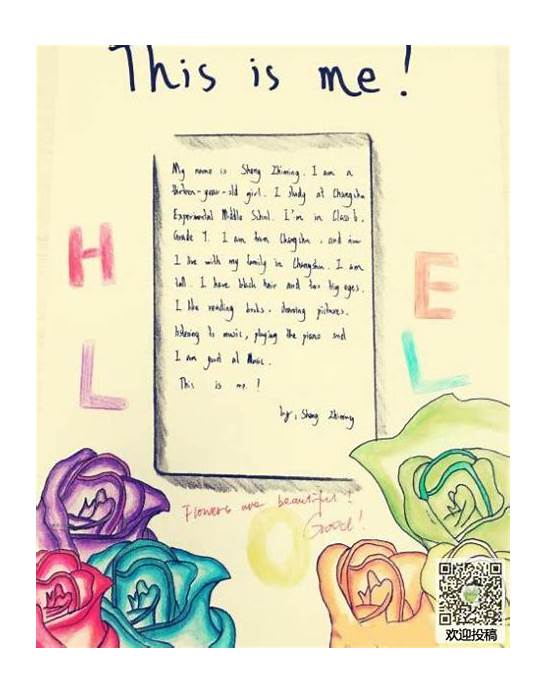 This is me!
My name is Sheng Zhiming. I am a
thirteen-year-old girl. I study at Changsha
Experimental Middle School. I'm in Class 6,
Grade 7. I am from Changsha, and now
I live with my family in Changsha. I am
tall. I have black hair and two big eyes.
I like reading books, drawing pictures,
listening to music, playing the piano and
I am good at Music.
This is me!
by: Sheng Zhiming
H
E
L
L
O
Flowers are beautiful!
Good!
欢迎投稿